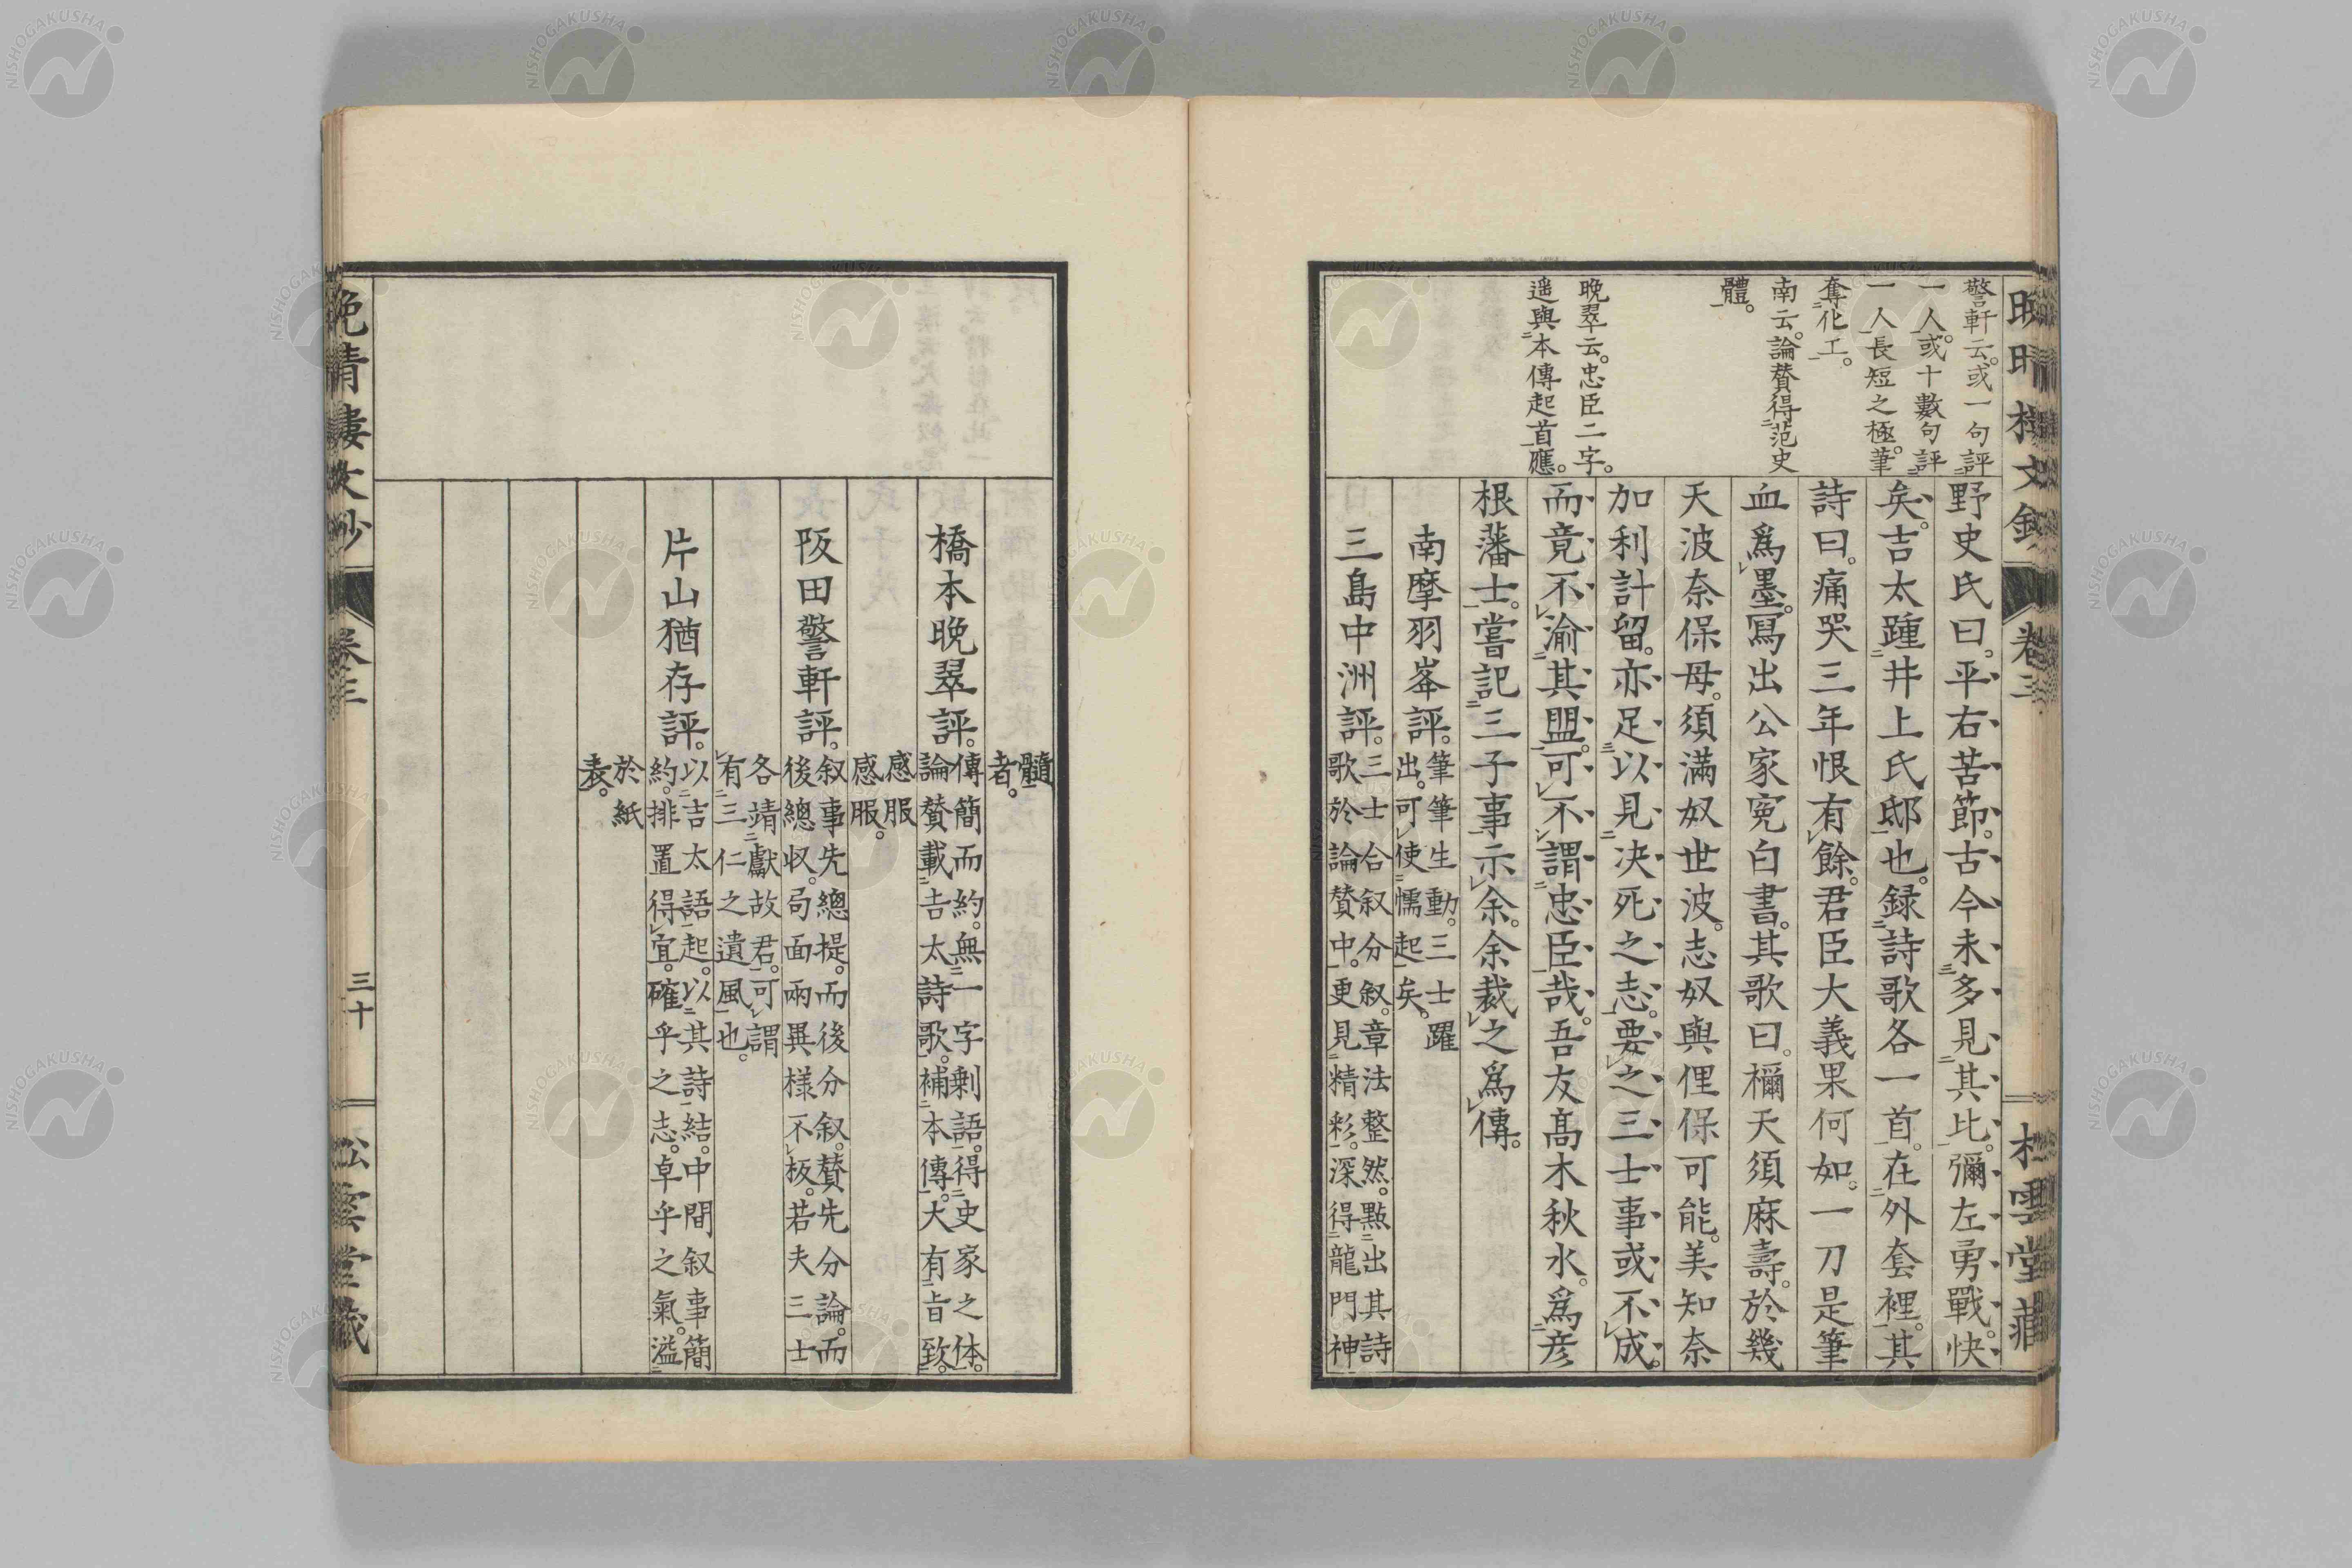 警軒云。或一句評
一人。或十數句評
一人長短之極。筆
奪化工。
南云。論賛得范史
體。
晚翠云。忠臣二字。
遥與本傳起首應。
野史氏曰。平右苦節。古今未多見其比。彌左勇戰。快
矣。吉太踵井上氏邸也。録詩歌各一首。在外套裡。其
詩曰。痛哭三年恨有餘。君臣大義果何如。一刀是筆
血爲墨。寫出公家寃白書。其歌曰。檷天須麻壽。於幾
天波奈保母。須満奴世波。志奴與俚保可能。美知奈
加利計留。亦足以見决死之志。要之三士事或不成。
而竟不渝其盟。可不謂忠臣哉。吾友髙木秋水。爲彦
根藩士。嘗記三子事示余。余裁之爲傳。
南摩羽峯評。筆筆生動。三士躍
出。可使懦起矣。
三島中洲評。三士合叙分叙。章法整然。點出其詩
歌於論賛中。更見精彩。深得龍門神
卷三
髓
者。
橋本晚翠評。傳簡而約。無一字剩語。得史家之体。
論賛載吉太詩歌。補本傳。大有旨致。
感服
感服。
阪田警軒評。叙事先總提。而後分叙。賛先分論。而
後總収。局面兩異様不板。若夫三士
各靖獻故君。可謂
有三仁之遺風也。
片山猶存評。以吉太語起。以其詩結。中間叙事簡
約。排置得宜。確乎之志。卓乎之氣。溢
於紙
表。
晚晴樓文鈔
卷三
三十
松雲堂藏
NISHOGAKUSHA